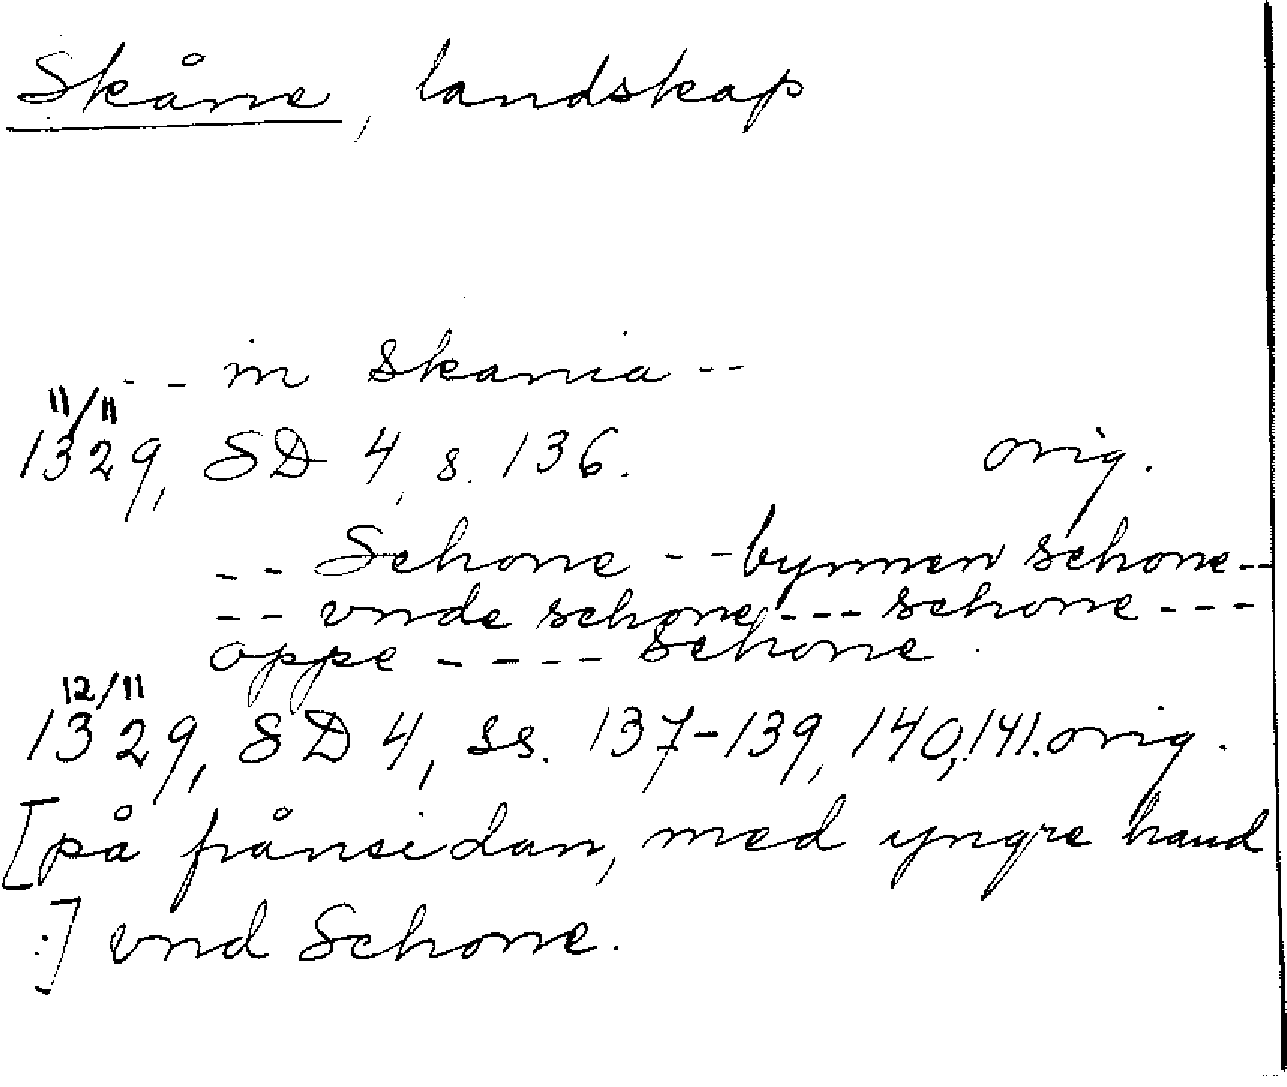 Skåne, landskap
-- in Skania --
11/11
1329, SD 4, s. 136. orig.
-- Schone -- bynnen schone --
-- vnde schone --- schone ---
oppe ---- Schone.
12/11
1329, SD 4, ss. 137-139, 140, 141. orig.
[på frånsidan, med yngre hand
:] vnd Schone.